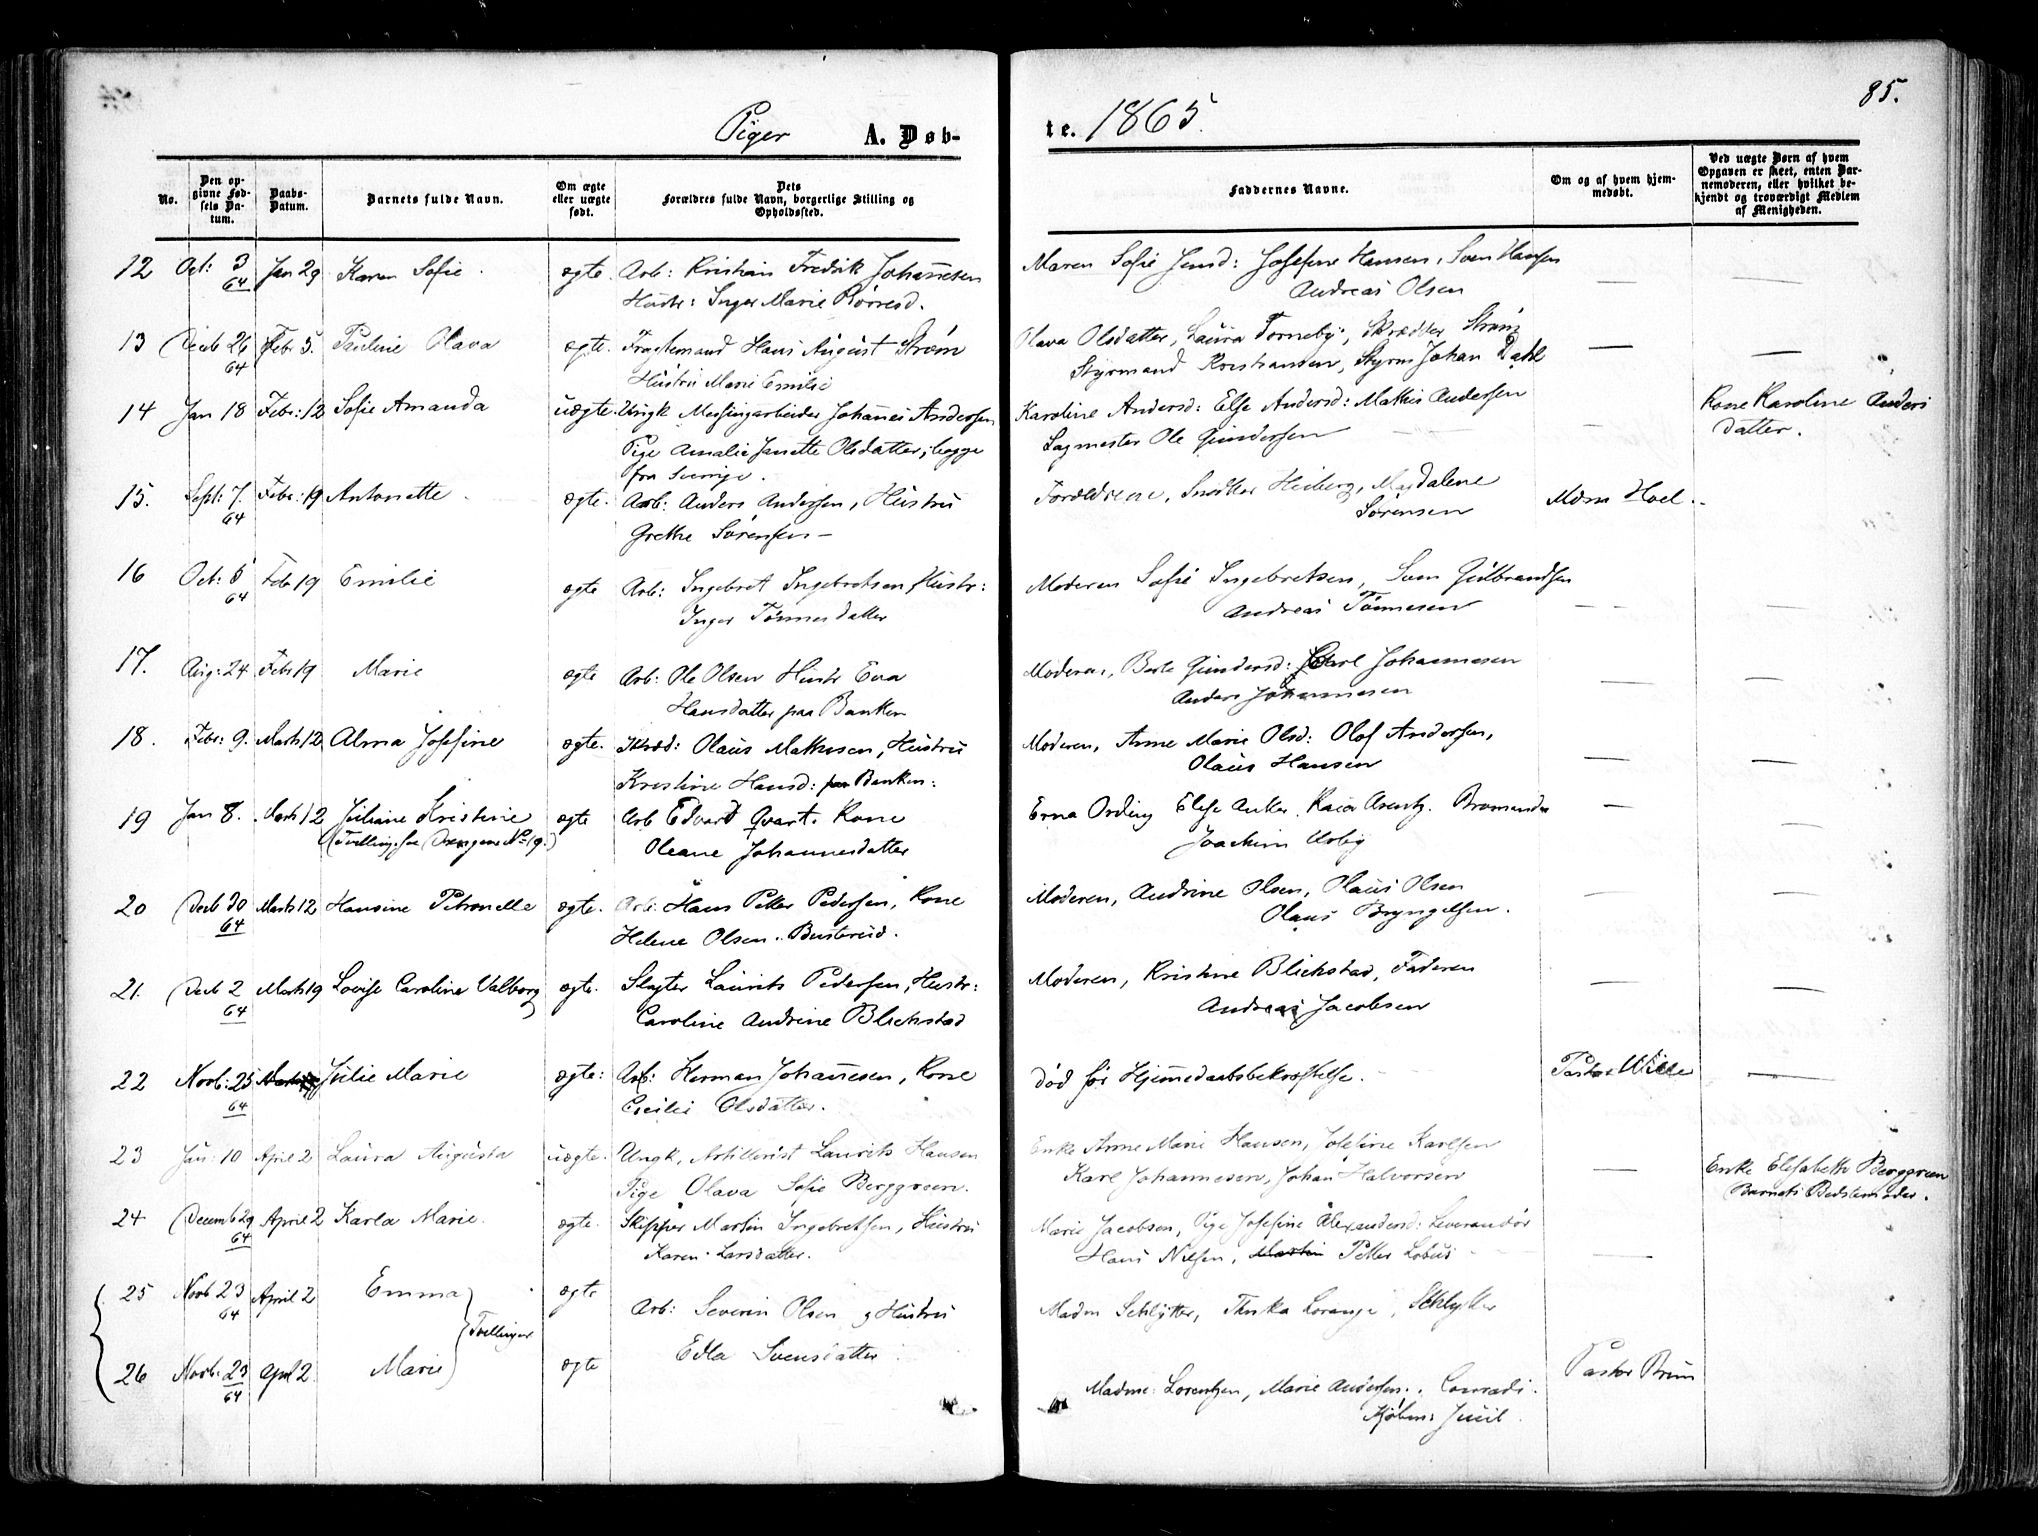 85.
Piger A. Døb-
te. 1865.
No.
Den op-
givne Fød-
sels Da-
tum.
Daabs-
Datum.
Barnets fulde Navn.
Om ægte
eller uægte
født.
Dets
Forældres fulde Navn, borgerlige Stilling og
Opholdssted.
Faddernes Navne.
Om og af hvem hjem-
medøbt.
Ved uægte Børn af hvem
Opgaven er skeet, enten Bar-
nemoderen, eller hvilket be-
kjendt og troværdigt Medlem
af Menigheden.
12 Oct: 3 Jan 29 Karen Sofie. ægte. Arb: Kristian Fredrik Johannesen Maren Sofie Jensd: Josefine Hansen, Sven Hansen
64 Hustr: Inger Marie Børresd. Andreas Olsen
13 Decb 26 Febr 5. Pauline Olava ægte. Fragtemand Hans August Strøm Olava Olsdatter, Laura Torneby, Skrædder Strøm
64 Hustru Marie Emilie Styrmand Kristiansen, Styrm Johan Dahl
14 Jan 18 Febr: 12 Sofie Amanda uægte. Ungk Messingarbeider Johannes Andersen Karoline Andersd: Else Andersd: Mathis Andersen Kone Karoline Anders
Pige Amalie Janette Olsdatter, begge Sagmester Ole Gundersen datter.
fra Sverrige.
15. Sept: 7. Febr: 19 Antonette ægte. Arb: Anders Andersen, Hustru Forældrene, Snedker Heiberg, Magdalene Mdm Hoel.
64 Grethe Sørensen Sørensen
16 Oct: 6 Feb 19 Emilie ægte Arb: Ingebret Ingebretsen, Hustr: Moderen Sofie Ingebretsen, Sven Gulbrandsen
64 Inger Tønnesdatter Andreas Tønnesen
17. Aug: 24 Febr 19 Marie ægte Arb: Ole Olsen Hustr Eva Moderen, Berte Gundersd: Carl Johannesen
Hansdatter paa Banken Anders Johannesen
18. Febr: 9. Marts 12 Alma Josefine ægte. Skræd: Olaus Mathesen, Hustru Moderen, Anne Marie Olsd: Olof Andersen,
Kristine Hansd: paa Banken: Olaus Hansen
19 Jan 8. Marts 12 Juliane Kristine ægte Arb Edvard Qvart. Kone Erna Ording Else Anker. Kaia Arentz.
(Tvilling, see Drengene No 19.) Oleane Johannesdatter Joachim
20 Decb 30 Marts 12 Hansine Petronelle ægte. Arb: Hans Petter Pedersen, Kone Moderen, Andrine Olsen, Olaus Olsen
64 Helene Olsen. Busterud. Olaus Bryngelsen.
21. Decb 2 Marts 19 Lovise Caroline Valborg ægte. Slagter Laurits Pedersen, Hustr: Moderen, Kristine Blichstad, Faderen
64 Caroline Andrine Blichstad Andreas Jacobsen
22 Novb: 25 Julie Marie ægte: Arb: Herman Johannesen, Kone død før Hjemmedaabsbekræftelse. Pastor Wille
64 Cecilie Olsdatter.
23 Jan: 10 April 2 Laura Augusta uægte. Ungk, Artillerist Laurits Hansen Enke Anne Marie Hansen, Josefine Karlsen
Pige Olava Sofie Berggreen. Karl Johannesen, Johan Halvorsen Enke Elisabeth Berggreen
Barnets Bedstemoder.
24 Decemb 29 April 2 Karla Marie. ægte. Skipper Martin Ingebretsen, Hustru Marie Jacobsen, Pige Josefine Alexandersd: Leverandør
64 Karen Larsdatter. Hans Nilsen, Martin Petter Lobus
25 Novb 23 April 2 Emma ægte Arb: Severin Olsen og Hustru Madm Schlytter, Thrika Lorange, Schlytter
64 Tvillinger Edla Svensdatter
26 Novb: 23 April 2 Marie ægte Pastor Brun
64 Madme: Lorentzen, Marie Andersen. Conradi.
Kjøbm: Juul.